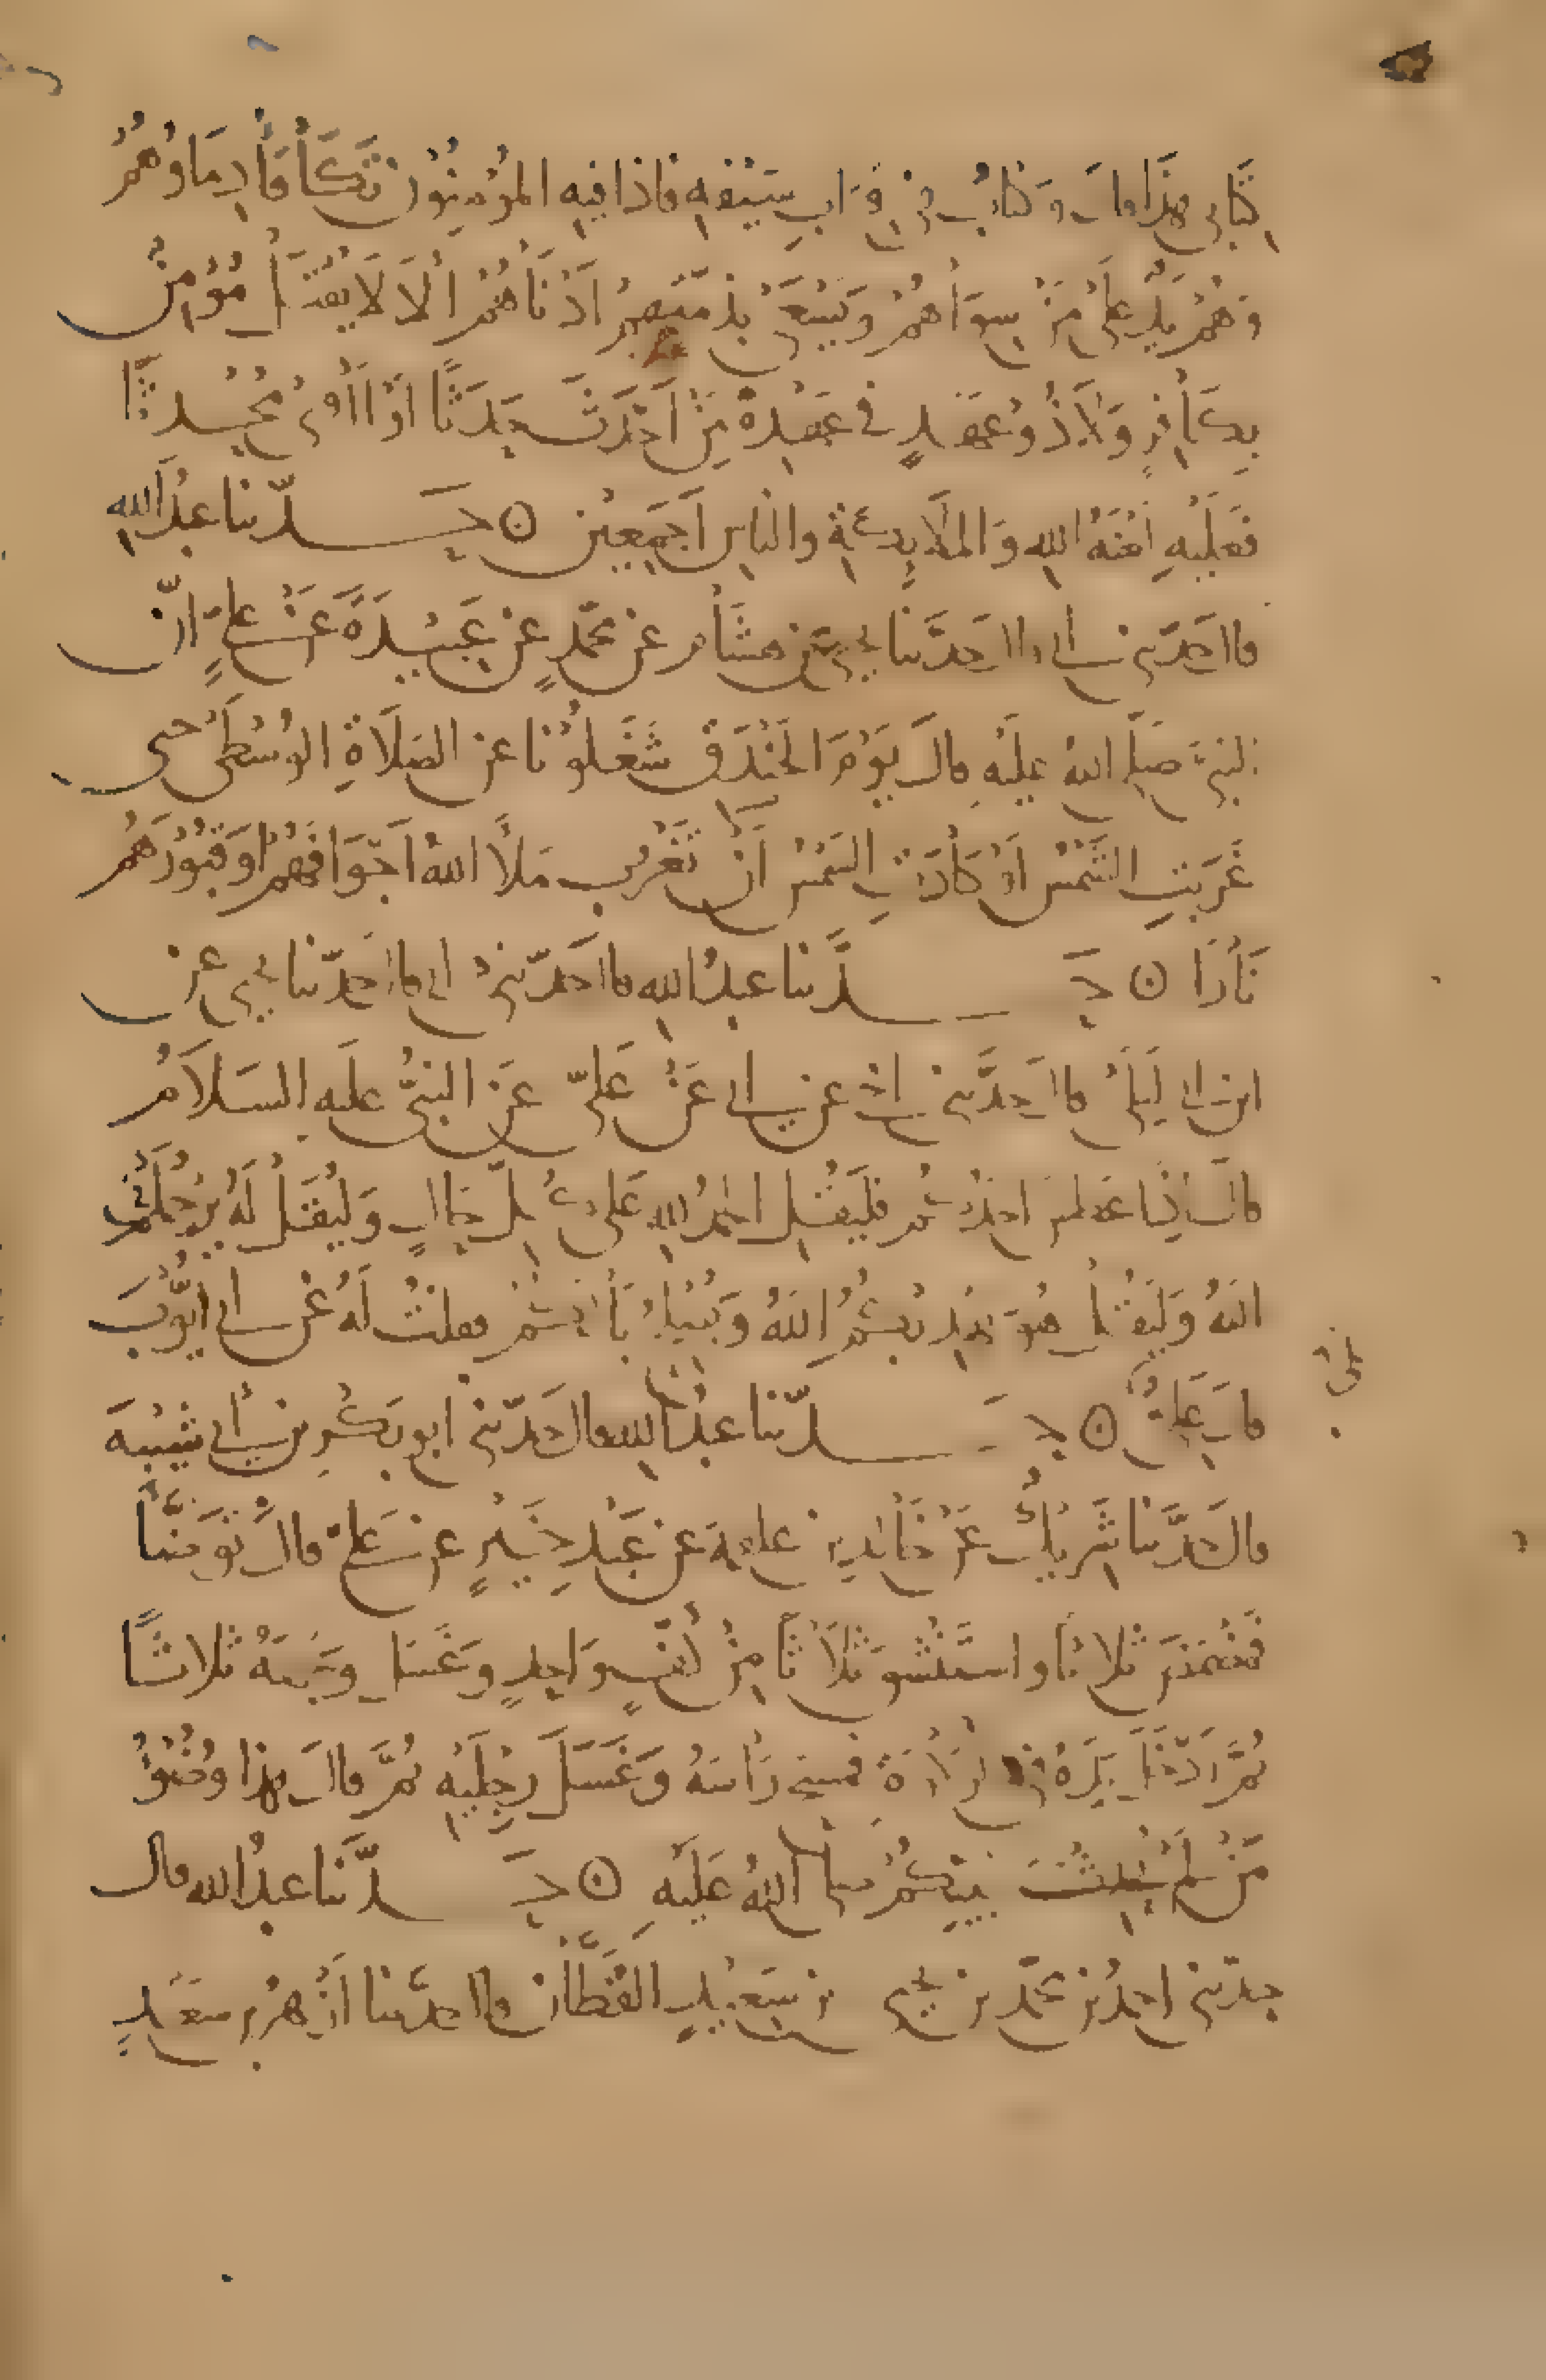 كِتَابِي هَذَا قالَ وَكِتَابٌ فِي قِرَابِ سَيْفِهِ فاذا فيهِ المُؤْمِنُونَ تَكَافَأُ دِمَاؤُهُمْ
وَهُمْ يَدٌ عَلَى مَنْ سِوَاهُمْ وَيَسْعَى بِذِمَّتِهِمْ اَدْنَاهُمْ اَلَا لَا يُقْتَلُ مُؤْمِنٌ
بِكَافِرٍ وَلَا ذُو عَهْدٍ في عَهْدِهِ مَنْ اَحْدَثَ حَدَثًا اَوْ اٰوَى مُحْدِثًا
فَعَلَيْهِ لَعْنَةُ اللهِ وَالمَلَائِكَةِ والنَّاسِ اَجْمَعِيْنَ ۞ حَدَّثنا عبدُ اللهِ
قال حَدَّثني ابي قال حَدَّثنا يحيى عَن هِشَام عن محمّدٍ عن عَبِيْدَةَ عَنْ عليٍّ انّ
النبيَّ صَلَّى اللهُ عليْهِ قالَ يَوْمَ الخَنْدَقِ شَغَلُوْنا عن الصَلَاةِ الوُسْطَى حتى
غَرَبَتِ الشَّمْسُ اَوْ كَادَتِ الشَمْسُ اَنْ تَغْرُبَ مَلأَ اللهُ اَجْوَافَهُمْ اَوْ قُبُوْرَهُمْ
نَارًا ۞ حَدَّثنا عبدُ اللهِ قال حَدّثني ابي قال حَدّثنا يحيى عن
ابن ابي لَيْلَى قال حَدَّثني اخي عن ابي عَنْ عَليّ عَن النبيِّ عليه السَلَامُ
قالَ اِذَا عَطَسَ احدُكُمْ فليَقُلِ الحمدُ للهِ عَلَى كُلِّ حَالٍ وَليُقَلْ لَهُ يَرْحَمُكُمُ
اللهُ وَليَقُلْ هُوَ يَهْدِيكُمُ اللهُ وَيُصْلِحُ بَالَكُمْ فقلتُ لَهُ عَنْ ابي ايُّوْبَ
قالَ عَليٌّ ۞ حَدّثنا عبدُ اللهِ قال حَدّثني ابو بَكْرِ بن أبي شَيْبَةَ
قال حَدَّثنا شَرِيْكٌ عَنْ خَالدِ بن علقمةَ عن عَبْدِ خَيْرٍ عن عَليّ قالَ تَوَضَّأَ
فَتَمَضْمَضَ ثلاثا واسْتَنْشَقَ ثَلَاثًا مِنْ كَفٍّ وَاحِدٍ وَغَسَلَ وَجْهَهُ ثلاثًا
ثُمَّ اَدْخَلَ يَدَهُ في الرَّكْوَةِ فمَسحَ رَاْسَهُ وَغَسَلَ رِجْلَيْهِ ثمَّ قالَ هذا وُضُوْءُ
نَبِيِّكُمْ صلى اللهُ عَلَيْهِ ۞ حَدَّثنا عبدُ الله قال
حدّثني احمدُ بن محمّد بن يحيى بن سَعِيْدٍ القَطَّانُ قال حدَّثنا اَزْهَرُ بن سَعْدٍ